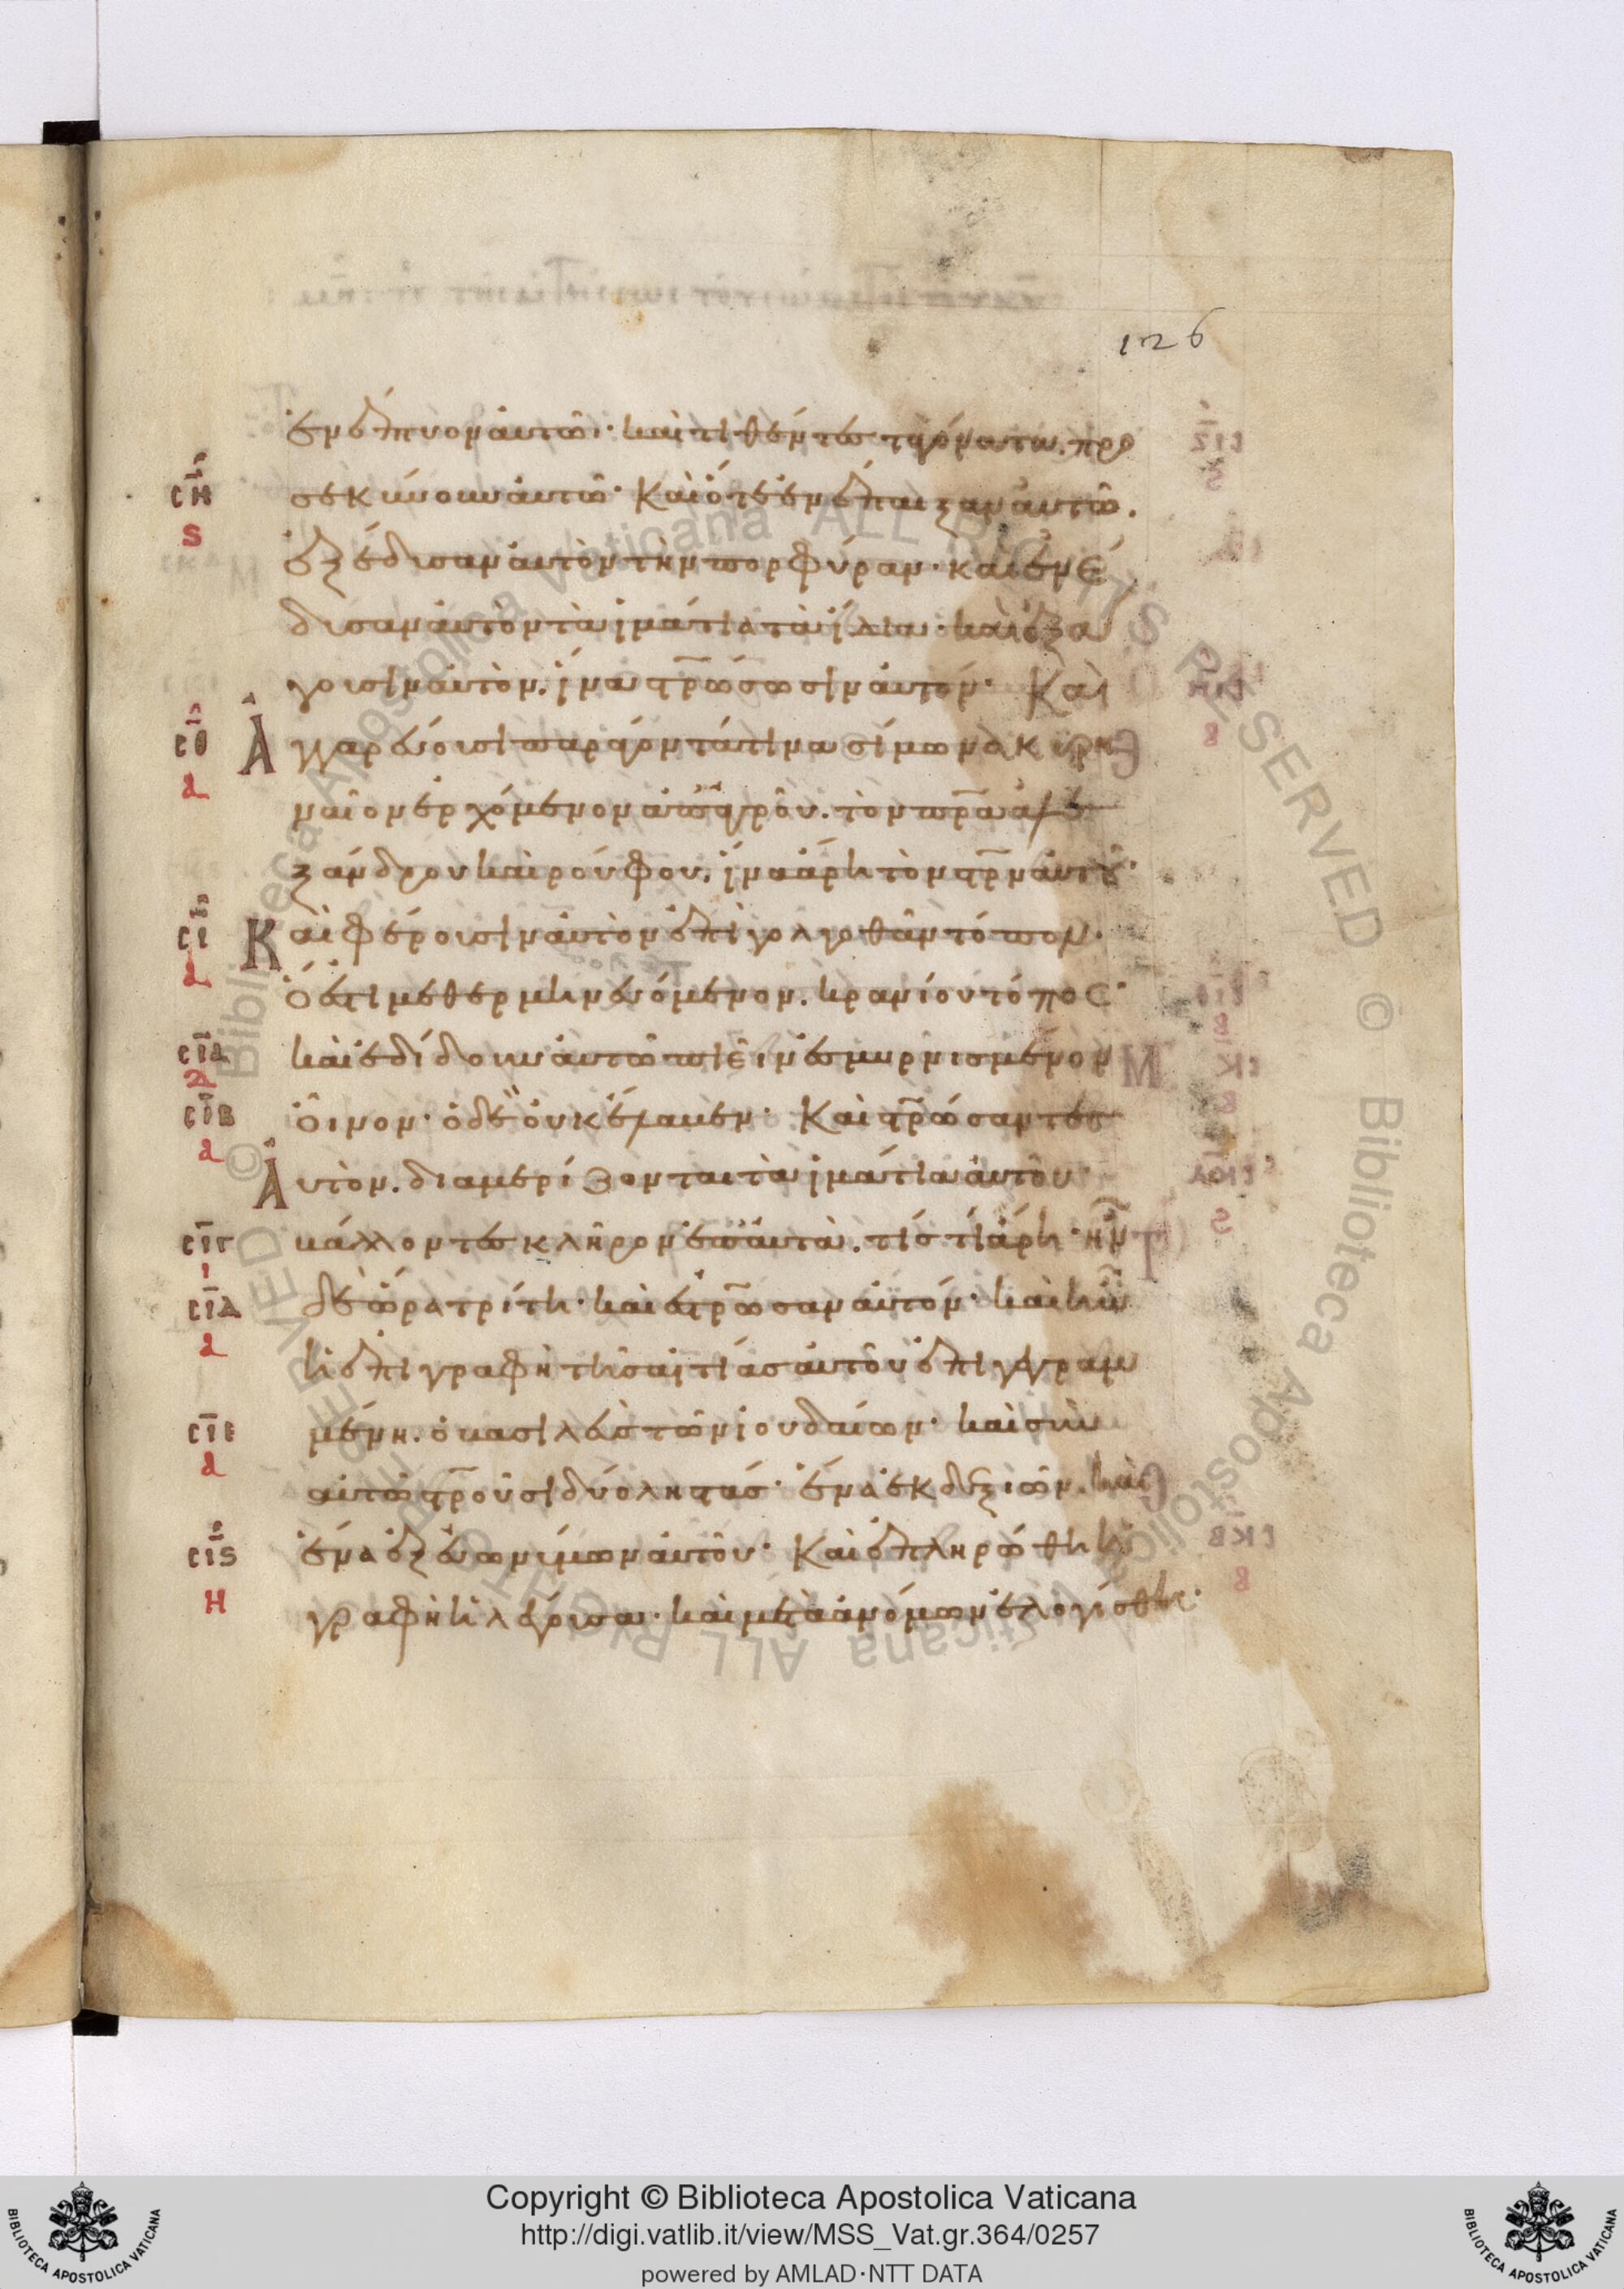 126
ἐνέπτυον αὐτῶ· καὶ τιθέντες τὰ γόνατα. προ
σεκύνουν αὐτῶ· Καὶ ὅτε ἐνέπαιξαν αὐτῶ.
ἐξέδυσαν αὐτὸν τὴν πορφύραν· καὶ ἐνέ
δυσαν αὐτὸν τὰ ἱμάτια τὰ ἴδια· καὶ ἐξά
γουσιν αὐτὸν. ἵνα σ̅ρ̅ώσωσιν αὐτόν· Καὶ
Ἀγγαρεύουσι παράγοντά τινα σίμωνα κυρη
ναῖον ἐρχόμενον ἀπ' ἀγροῦ. τὸν π̅ρ̅α ἀλε
ξάνδρου καὶ ρούφου. ἵνα ἄρη τὸν σ̅ρ̅ν αὐτοῦ·
Καὶ φέρουσιν αὐτὸν ἐπὶ γολγοθᾶν τόπον.
ὅ ἐστι μεθερμηνευόμενον. κρανίου τόπος·
καὶ ἐδίδουν αὐτῶ πιεῖν ἐσμυρνισμένον
οἶνον· ὁ δὲ οὐκ ἔλαβεν· Καὶ σ̅ρ̅ώσαντες
Αὐτὸν. διαμερίζονται τὰ ἱμάτια αὐτοῦ
βάλλοντες κλῆρον ἐπ' αὐτὰ. τίς τί ἄρη· ἦν
δὲ ὥρα τρίτη· καὶ ἐσ̅ρ̅ωσαν αὐτόν· καὶ ἦν
ἡ ἐπιγραφὴ τῆς αἰτίας αὐτοῦ ἐπιγεγραμ
μένη. ὁ βασιλεὺς τῶν ἰουδαίων· καὶ σὺν
αὐτῶ σ̅ρ̅οῦσι δύο ληστάς· ἕνα ἐκ δεξιῶν. καὶ
ἕνα ἐξ εὐωνύμων αὐτοῦ· Καὶ ἐπληρώθη ἡ
γραφὴ ἡ λέγουσα· καὶ μετὰ ἀνόμων ἐλογίσθη·
ϹΗ
Ϛ
ϹΘ
Α
ϹΙ
Α
ϹΙΑ
Δ
ϹΙΒ
Α
ϹΙΓ
Ι
ϹΙΔ
Α
ϹΙΕ
Α
ϹΙϚ
Η
Copyright © Biblioteca Apostolica Vaticana
http://digi.vatlib.it/view/MSS_Vat.gr.364/0257
powered by AMLAD·NTT DATA
BIBLIOTECA APOSTOLICA VATICANA
BIBLIOTECA APOSTOLICA VATICANA